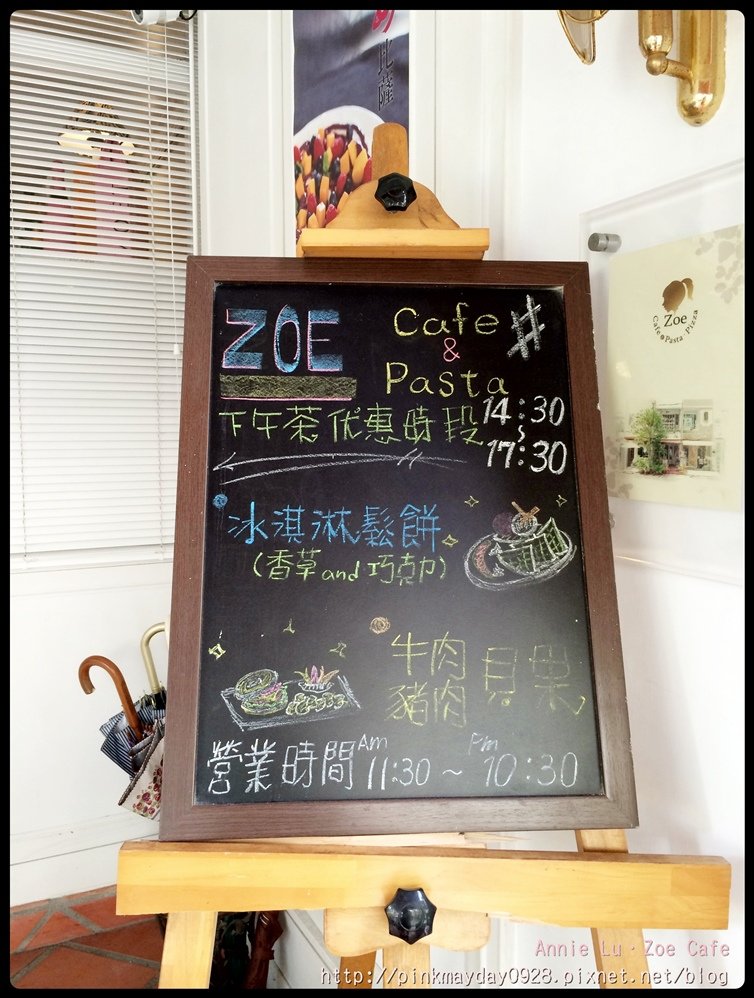 比薩
ZOE
Cafe
&
Pasta
下午茶优惠時段
14:30
~
17:30
冰淇淋鬆餅
(香草and巧克力)
牛肉
豬肉
貝果
營業時間 Am 11:30 ~ Pm 10:30
Zoe
Cafe Pasta Pizza
Annie Lu · Zoe Cafe
http://pinkmayday0928.pixnet.net/blog